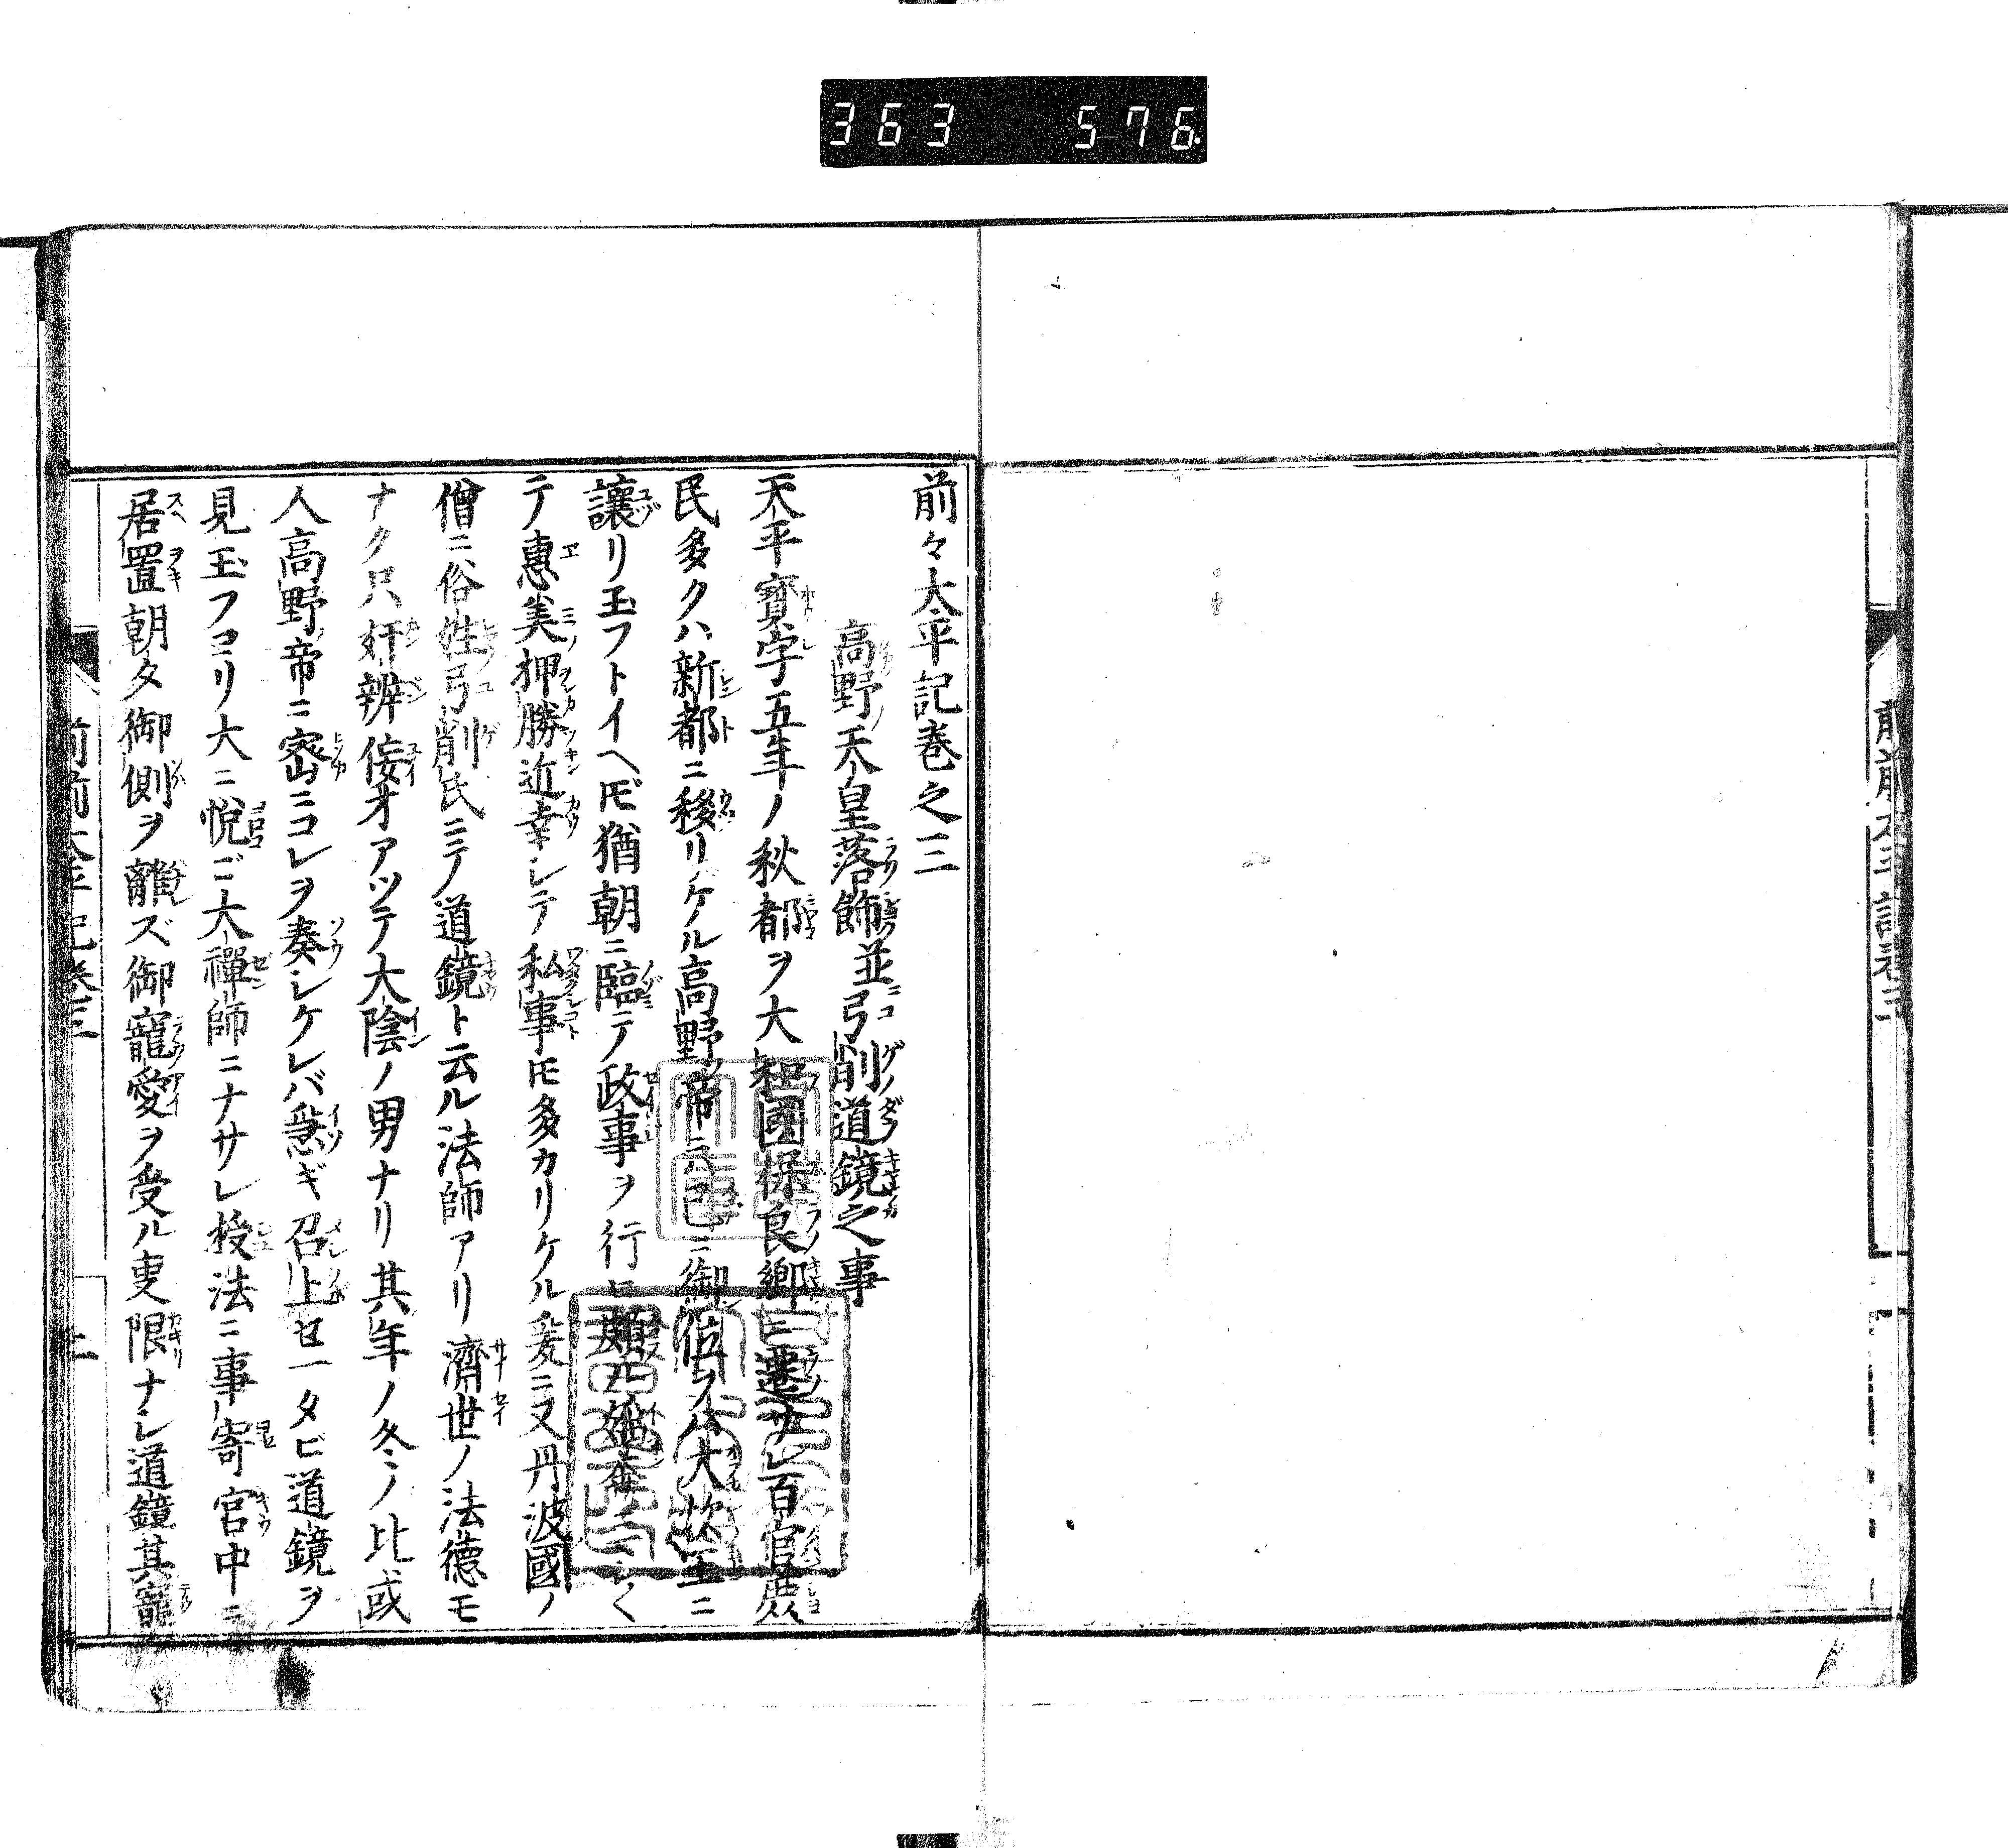 363 576
前々太平記巻之三
高野天皇落飾並弓削道鏡之事
天平寳字五年ノ秋都ヲ大和國保良郷ニ遷サレ百官
民多クハ新都ニ移リケル高野帝ニハ已ニ御位ヲハ大炊王ニ
讓リ玉フトイヘ𪜈猶朝ニ臨テ政事ヲ行
テ惠美押勝近幸シテ私事𪜈多カリケル爰ニ又丹波國ノ
僧ニ俗姓弓削氏ニテ道鏡ト云ル法師アリ濟世ノ法德モ
ナク只奸辨佞才アツテ大陰ノ男ナリ其年ノ冬ノ比或
人高野帝ニ密ニコレヲ奏シケレバ急ギ召上セ一タビ道鏡ヲ
見玉フヨリ大ニ悅ビ大禪師ニナサレ授法ニ事寄宮中ニ
居置朝夕御側ヲ離ズ御寵愛ヲ受ル叓限ナシ道鏡其寵
前前太平記巻三